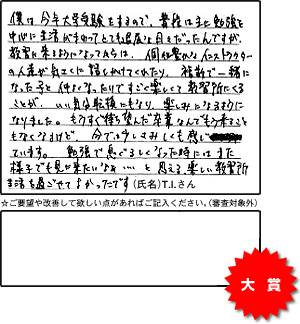 僕は今年大学受験をするので、普段はまだ勉強を
中心に生活がまわってとても退屈な日々だったんですが、
教習に来るようになってからは、個性豊かなインストラクター
の人達が気さくに話しかけてくれたり、独断で一緒に
なった子と仲よくなったりすごく楽しくて教習所にくる
ことが、いい気分転換にもなり、楽しみになるように
なりました。もうすぐ待ち望んだ卒業なんでもう来ること
もなくなるけど、今では少しさみしくも感じ
ています。勉強で息ぐるしくなった時にはまた
様子でも見に来たいなぁ…と思える楽しい教習所
生活を過ごせてよかったです(氏名)T.I.さん
☆ご要望や改善して欲しい点があればご記入ください。(審査対象外)
大賞